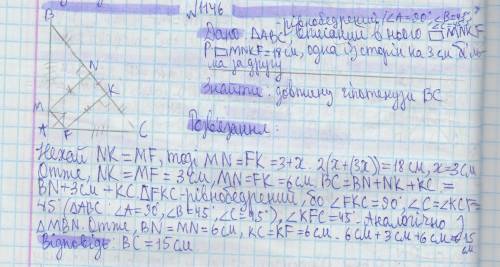 №1146
-рівнобедрений, ∠A=90°, ∠B=45°,
Дано: △ABC, вписаний в нього □ MNKF
P□MNKF=18см, одна із сторін на 3см біль-
ша за другу
Знайти: довжину гіпотенузи BC
Розв'язання:
B
N
K
M
A F C
Нехай NK=MF, тоді MN=FK=3+x. 2(x+(3x))=18см, x=3см
Отже, NK=MF=3см, MN=FK=6см. BC=BN+NK+KC=
BN+3см+KC. △FKC-рівнобедрений, бо ∠FKC=90°, ∠C=∠KCF=
45° (△ABC: ∠A=90°, ∠B=45°, ∠C=45°), ∠KFC=45°. Аналогічно
△MBN. Отже, BN=MN=6см, KC=KF=6см. 6см+3см+6см=15
см
Відповідь: BC=15см